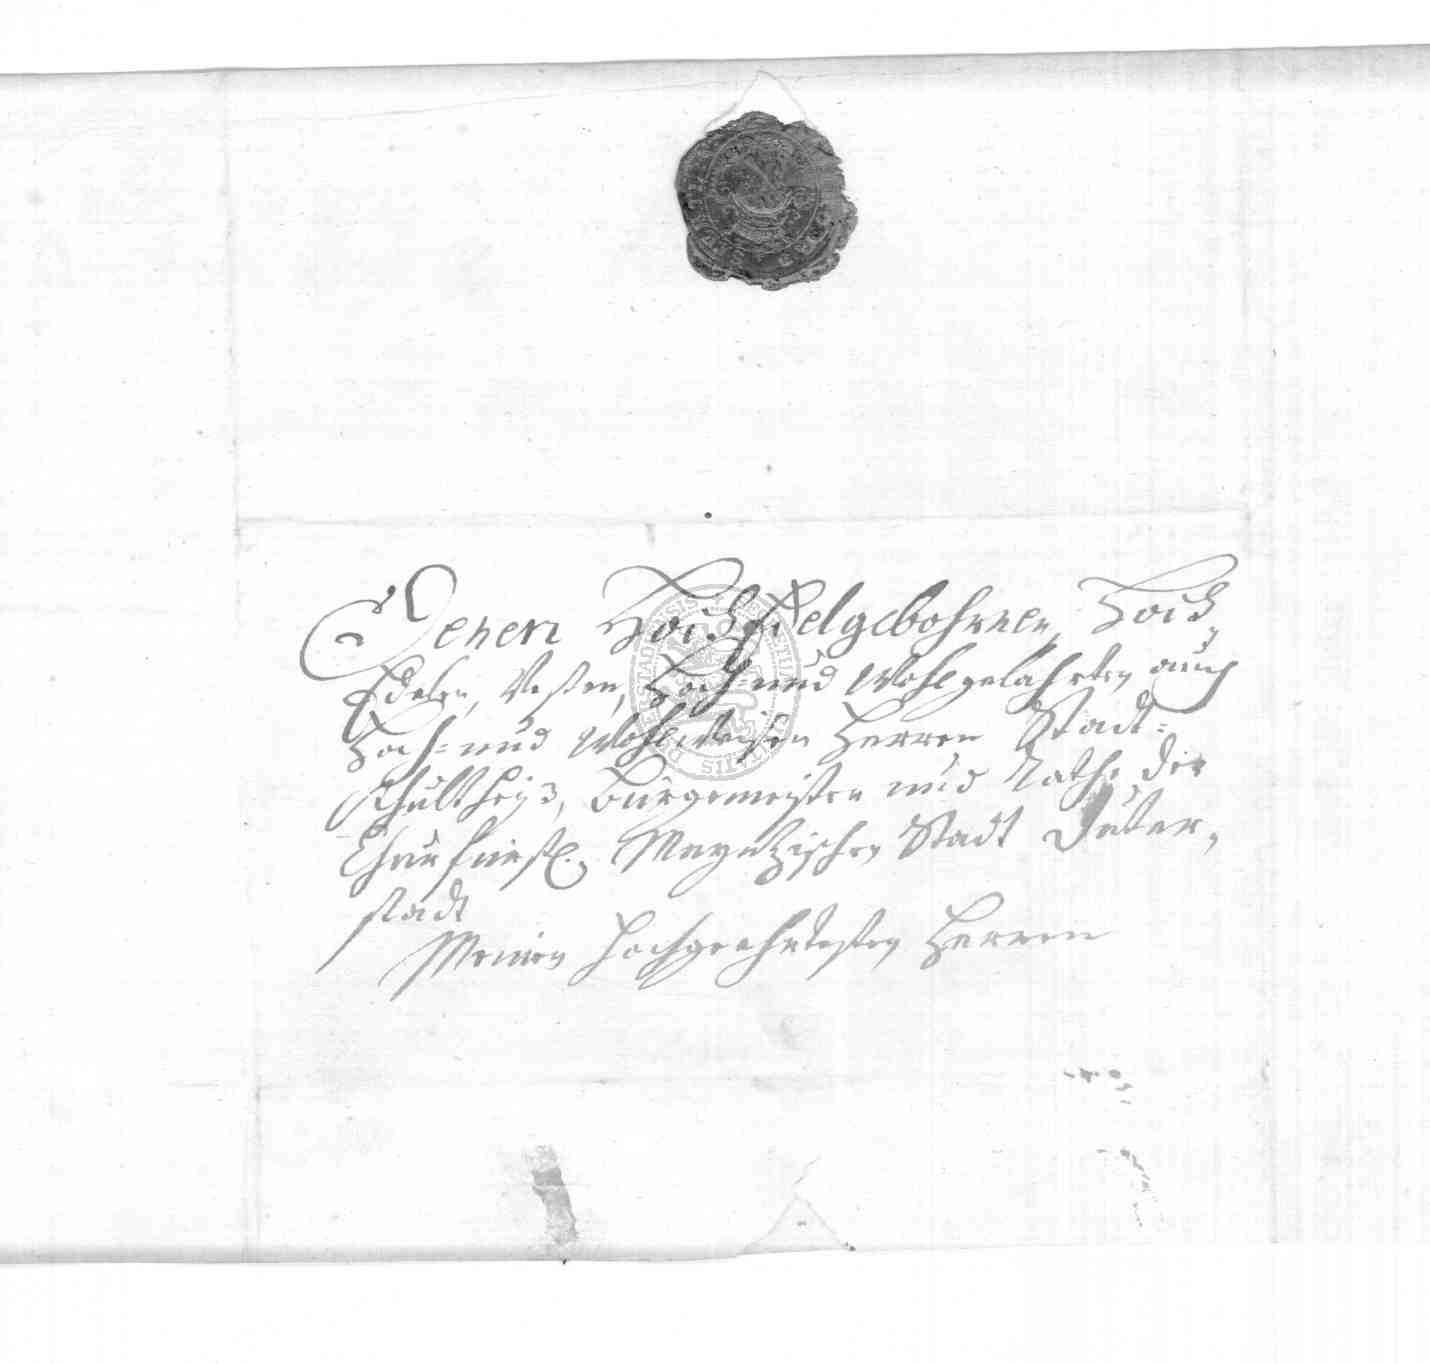 Denen HochEdelgebohrnen, Hoch-
Edelen, Vesten, Hoch- und Wohlgelahrten auch
Hoch- und Wohlweisen Herren Stadt-
Schultheiß, Bürgemeistern und Rath der
Churfürstl. Mayntzischen Stadt Duder-
stadt
Meinen Hochgeehrtesten Herren